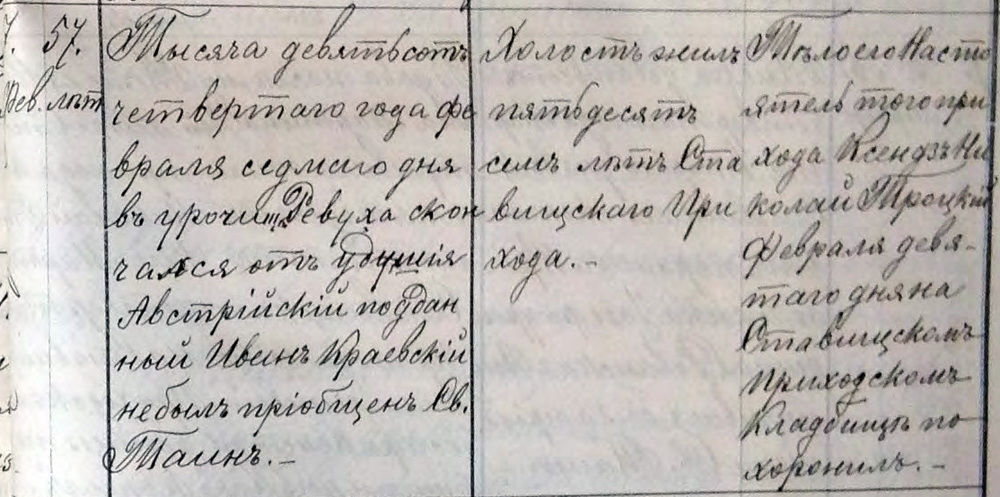 57.
Фев. лѣт
Тысяча девятьсотъ
четвертаго года фе
враля седмаго дня
въ урочищ. Ревуха скон
чался отъ удушія
Австрійскій поддан
ный Иванъ Краевскій
не былъ пріобщенъ Св.
Таинъ.–
Холостъ жилъ
пятьдесятъ
семь лѣтъ Ста
вищскаго При
хода.–
Тѣло его Насто
ятель того при
хода Ксендзъ Ни
колай Троцкій
Февраля девя-
таго дня на
Ставищскомъ
Приходскомъ
Кладбищѣ по
хоронилъ.–